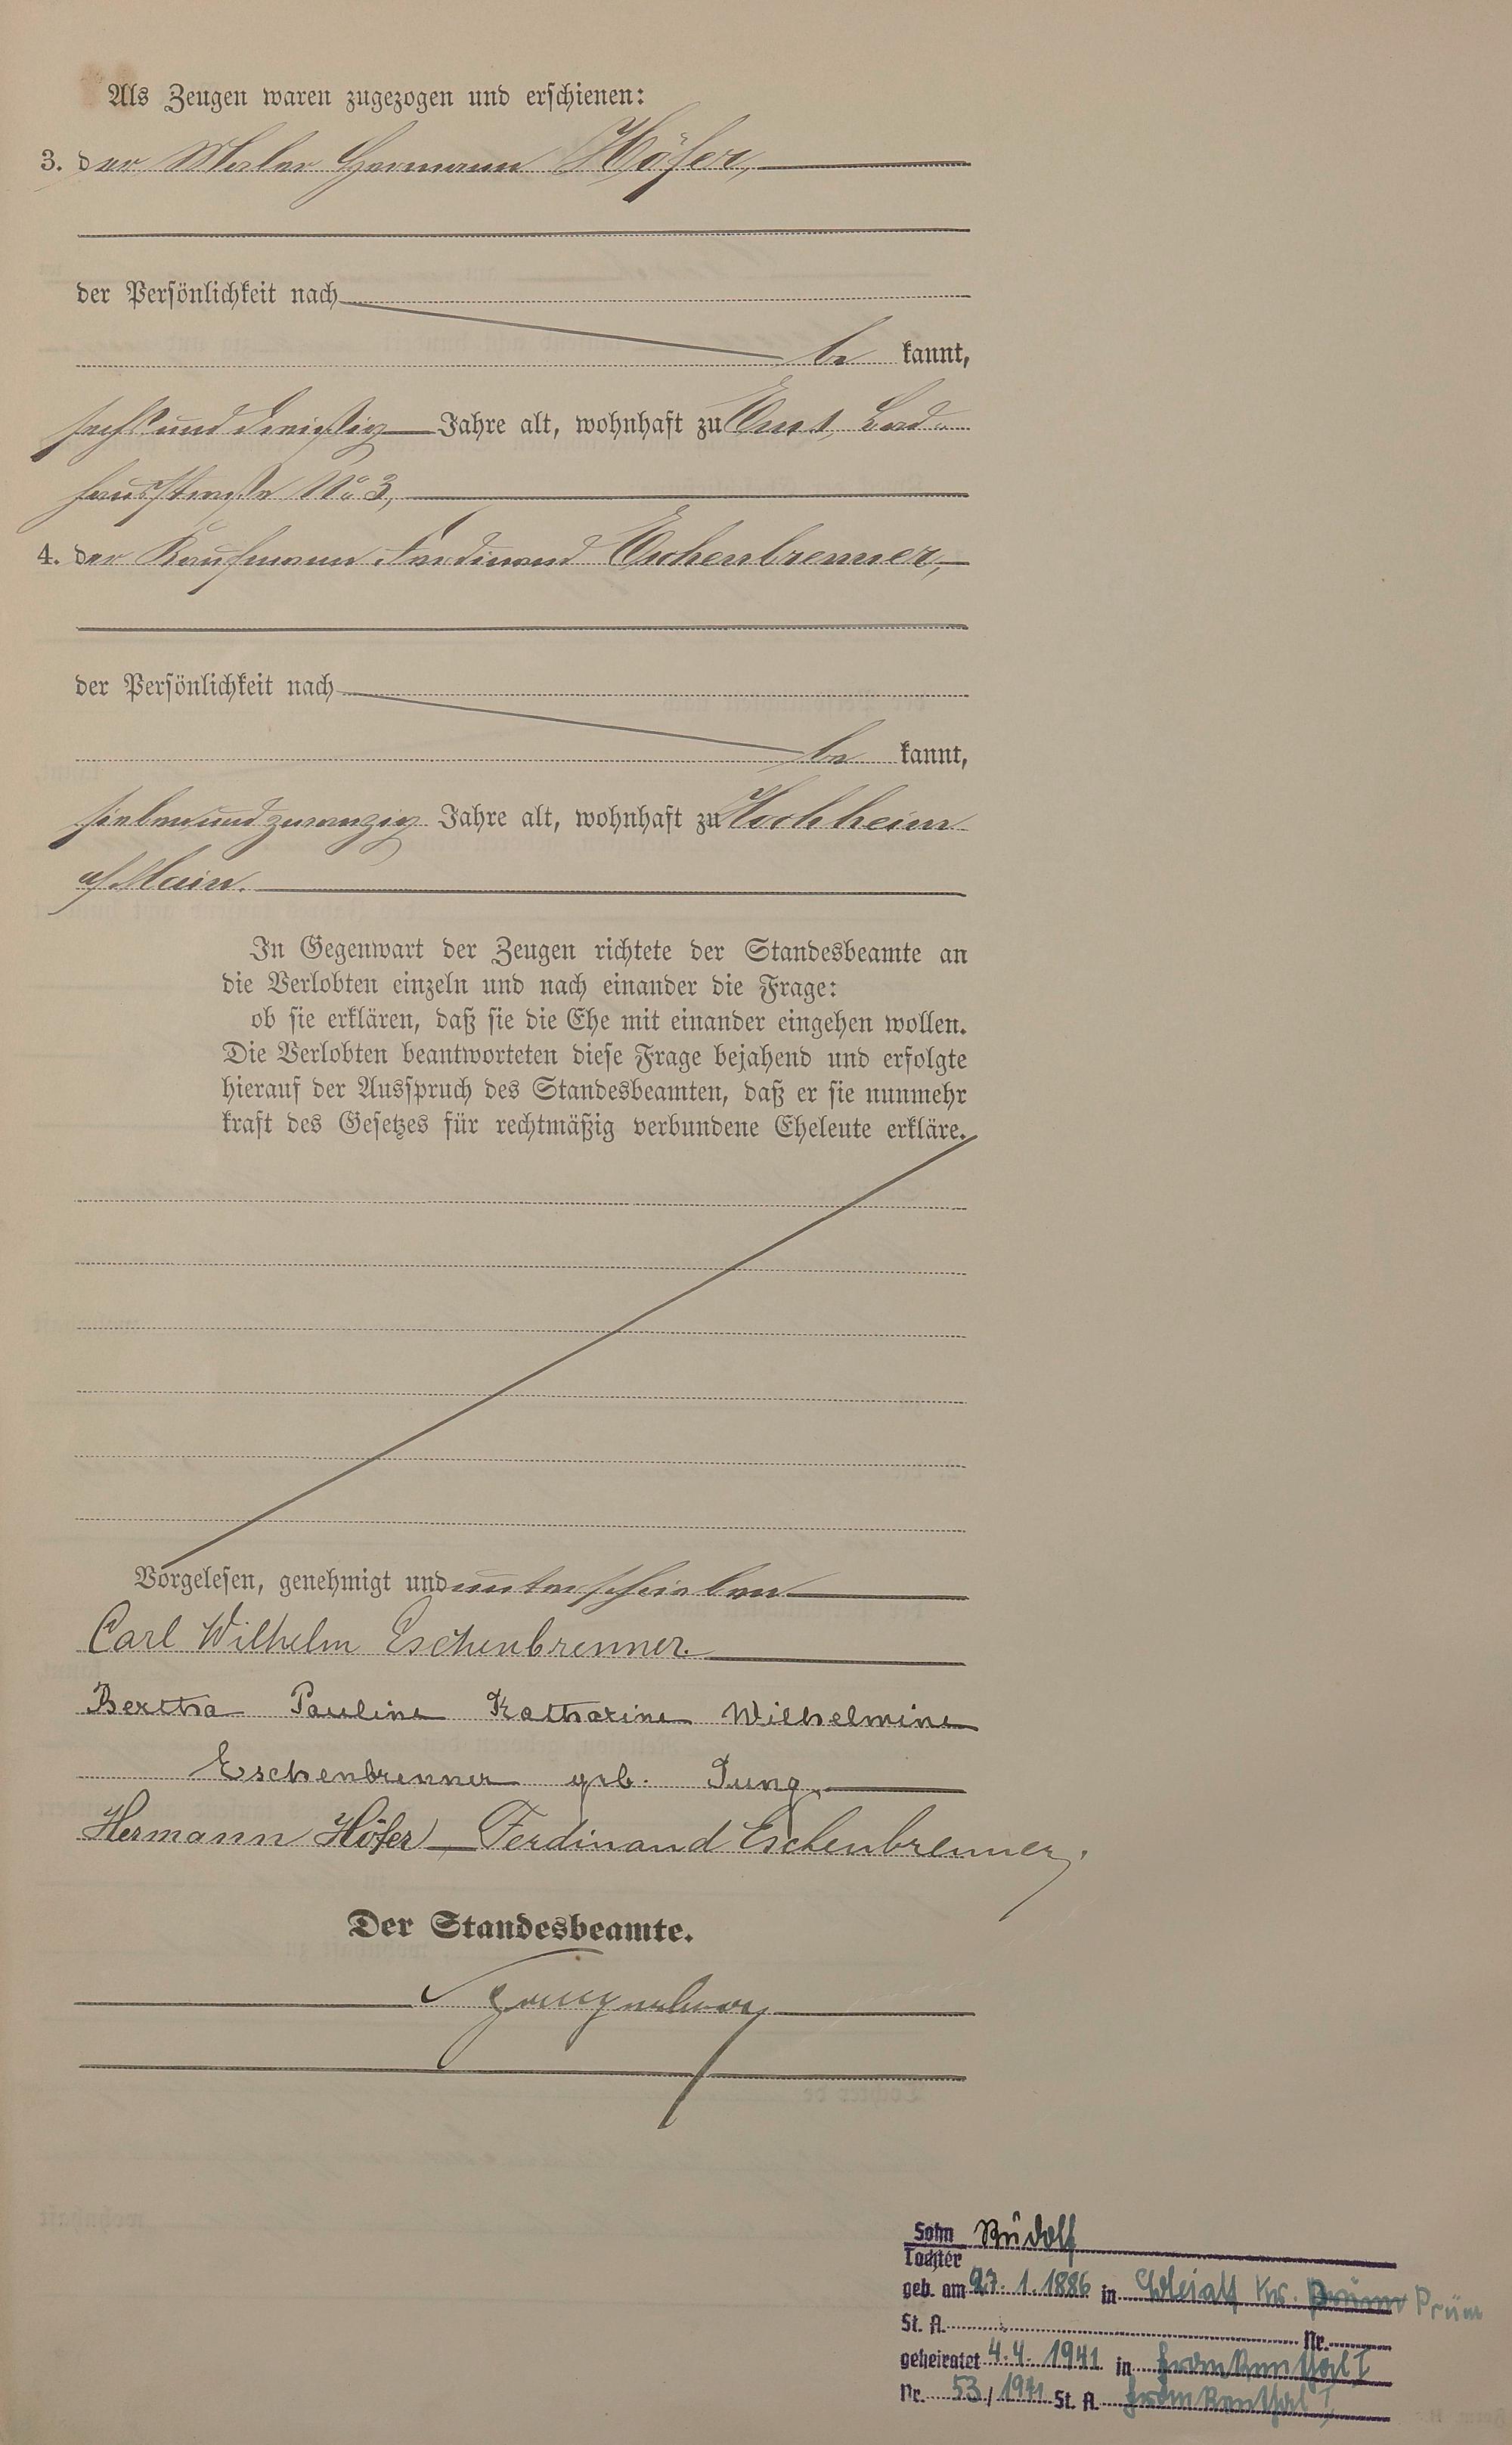 Als Zeugen waren zugezogen und erschienen:
3. der Maler Hermann Höfer,
der Persönlichkeit nach
be kannt,
sechs und dreißig Jahre alt, wohnhaft zu Ems, Bad-
hausstraße No 3,
4. der Kaufmann Ferdinand Eschenbrenner,
der Persönlichkeit nach
be kannt,
siebenundzwanzig Jahre alt, wohnhaft zu Hochheim
a/Main.
In Gegenwart der Zeugen richtete der Standesbeamte an
die Verlobten einzeln und nach einander die Frage:
ob sie erklären, daß sie die Ehe mit einander eingehen wollen.
Die Verlobten beantworteten diese Frage bejahend und erfolgte
hierauf der Ausspruch des Standesbeamten, daß er sie nunmehr
kraft des Gesetzes für rechtmäßig verbundene Eheleute erkläre.
Vorgelesen, genehmigt und unterschrieben
Carl Wilhelm Eschenbrenner.
Bertha Pauline Katharine Wilhelmine
Eschenbrenner geb. Jung.
Hermann Höfer Ferdinand Eschenbrenner.
Der Standesbeamte.
Sohn Rudolf
Tochter
geb. am 27. 1. 1886 in Bleialf Kr. Prüm Prüm
St. A. Nr.
geheiratet 4. 4. 1941 in Frankenthal I
Nr. 53 / 1941 St. A. Frankenthal I